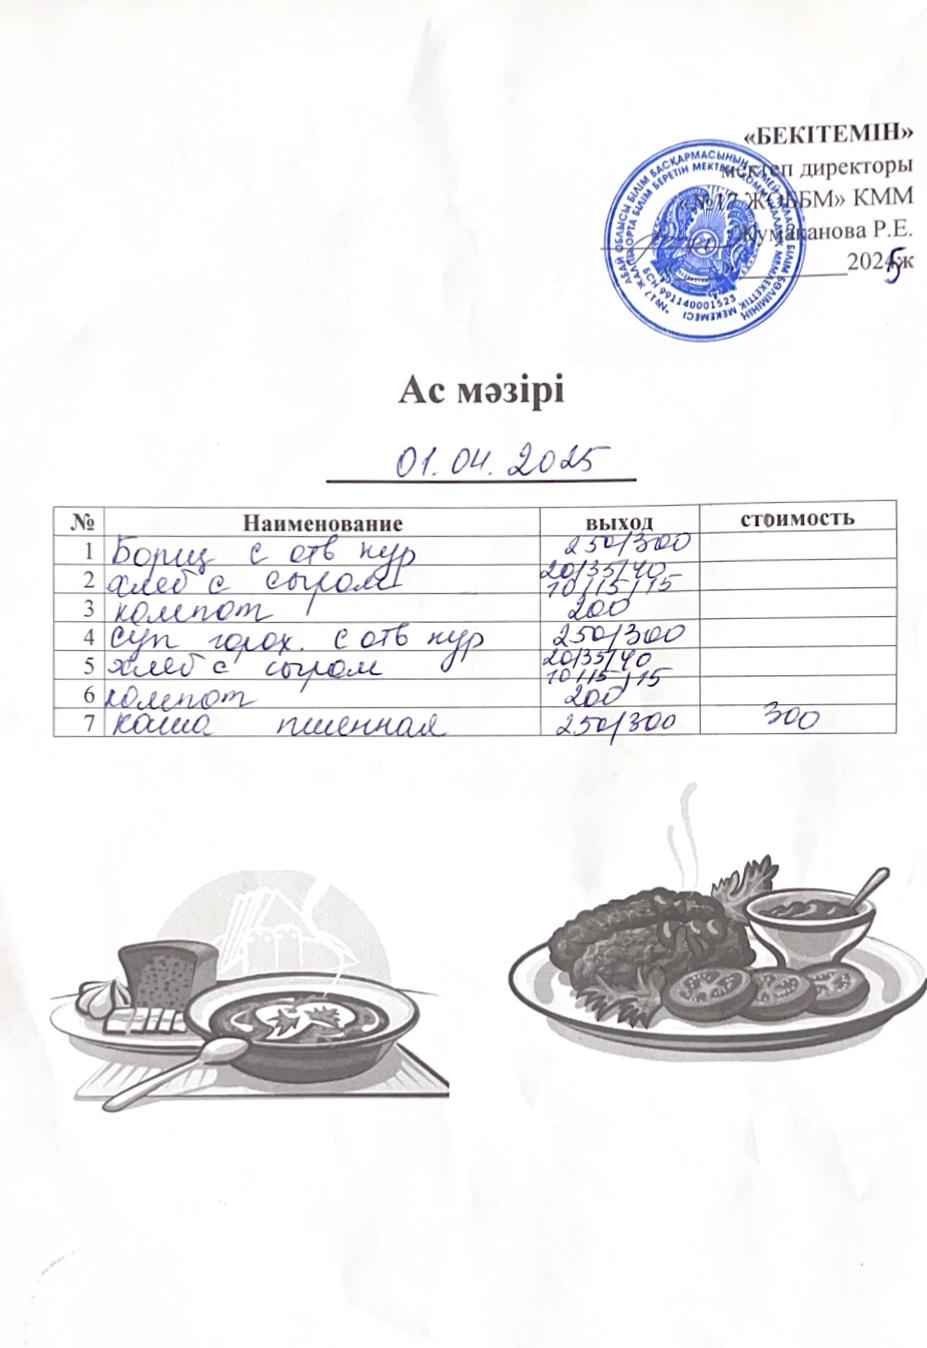 «БЕКІТЕМІН»
мектеп директоры
«№17 ЖОББМ» КММ
Жумаканова Р.Е.
2025ж
АБАЙ ОБЛЫСЫ БІЛІМ БАСҚАРМАСЫНЫҢ СЕМЕЙ БІЛІМ БӨЛІМІНІҢ
"№17 ЖАЛПЫ ОРТА БІЛІМ БЕРЕТІН МЕКТЕП" КОММУНАЛДЫҚ МЕМЛЕКЕТТІК МЕКЕМЕСІ
БСН 991140001523
Ас мәзірі
01.04.2025
№ Наименование выход стоимость
1 Борщ с отв кур 250/300
2 хлеб с сыром 20/35/40 10/15/15
3 компот 200
4 суп горох. с отв кур 250/300
5 хлеб с сыром 20/35/40 10/15/15
6 компот 200
7 каша пшенная 250/300 300